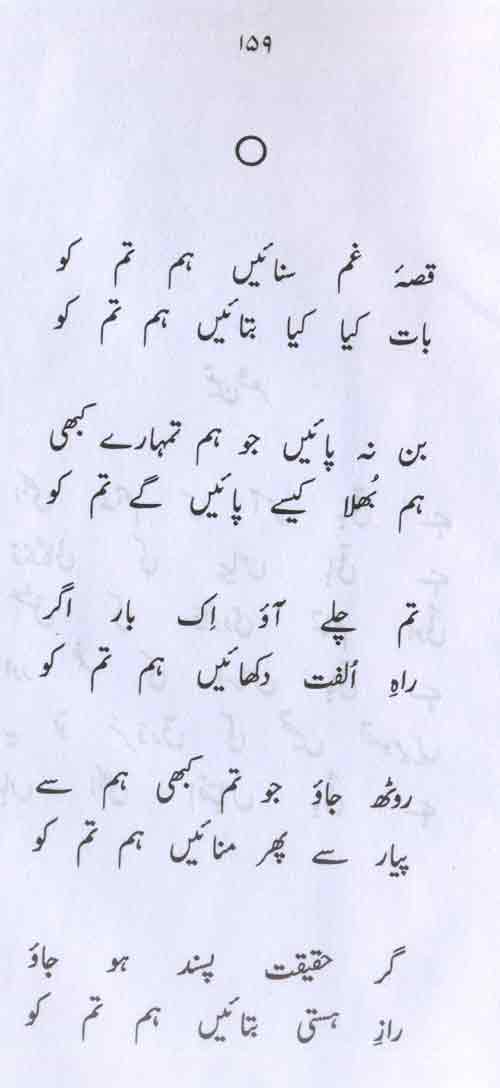 ۱۵۹
قصۂ غم سنائیں ہم تم کو
بات کیا کیا بتائیں ہم تم کو
بن نہ پائیں جو ہم تمہارے کبھی
ہم بُھلا کیسے پائیں گے تم کو
تم چلے آؤ اِک بار اگر
راہِ اُلفت دکھائیں ہم تم کو
روٹھ جاؤ جو تم کبھی ہم سے
پیار سے پھر منائیں ہم تم کو
گر حقیقت پسند ہو جاؤ
رازِ ہستی بتائیں ہم تم کو